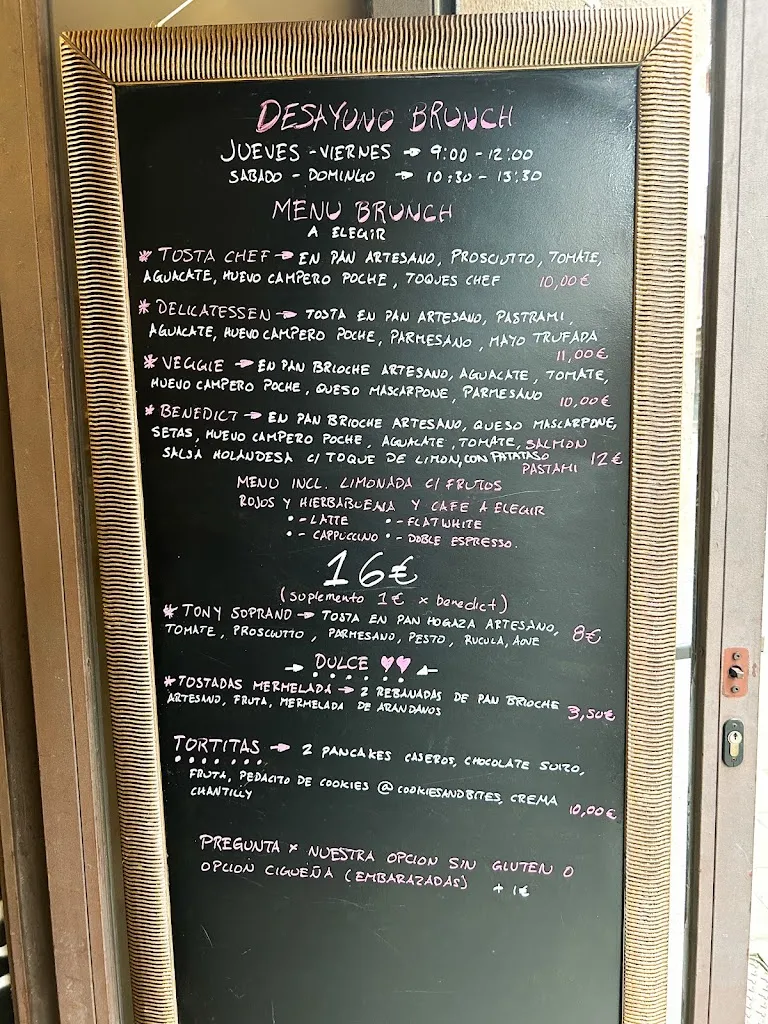 DESAYUNO BRUNCH
JUEVES - VIERNES → 9:00 - 12:00
SABADO - DOMINGO → 10:30 - 13:30
MENU BRUNCH
A ELEGIR
* TOSTA CHEF → EN PAN ARTESANO, PROSCIUTTO, TOMATE,
AGUACATE, HUEVO CAMPERO POCHE, TOQUES CHEF 10,00€
* DELICATESSEN → TOSTA EN PAN ARTESANO, PASTRAMI,
AGUACATE, HUEVO CAMPERO POCHE, PARMESANO, MAYO TRUFADA
11,00€
* VEGGIE → EN PAN BRIOCHE ARTESANO, AGUACATE, TOMATE,
HUEVO CAMPERO POCHE, QUESO MASCARPONE, PARMESANO 10,00€
* BENEDICT → EN PAN BRIOCHE ARTESANO, QUESO MASCARPONE,
SETAS, HUEVO CAMPERO POCHE, AGUACATE, TOMATE, SALMON
SALSA HOLANDESA C/ TOQUE DE LIMON, CON PATATAS O
PASTAMI 12€
MENU INCL. LIMONADA C/ FRUTOS
ROJOS Y HIERBABUENA Y CAFE A ELEGIR
• - LATTE • - FLATWHITE
• - CAPPUCCINO • - DOBLE ESPRESSO.
16€
(suplemento 1€ x benedict)
* TONY SOPRANO → TOSTA EN PAN HOGAZA ARTESANO,
TOMATE, PROSCIUTTO, PARMESANO, PESTO, RUCULA, AOVE 8€
→ DULCE ♥♥ ←
* TOSTADAS MERMELADA → 2 REBANADAS DE PAN BRIOCHE
ARTESANO, FRUTA, MERMELADA DE ARANDANOS 3,50€
TORTITAS → 2 PANCAKES CASEROS, CHOCOLATE SUIZO,
FRUTA, PEDACITO DE COOKIES @COOKIESANDBITES, CREMA
CHANTILLY 10,00€
PREGUNTA X NUESTRA OPCION SIN GLUTEN O
OPCION CIGUEÑA (EMBARAZADAS) + 1€